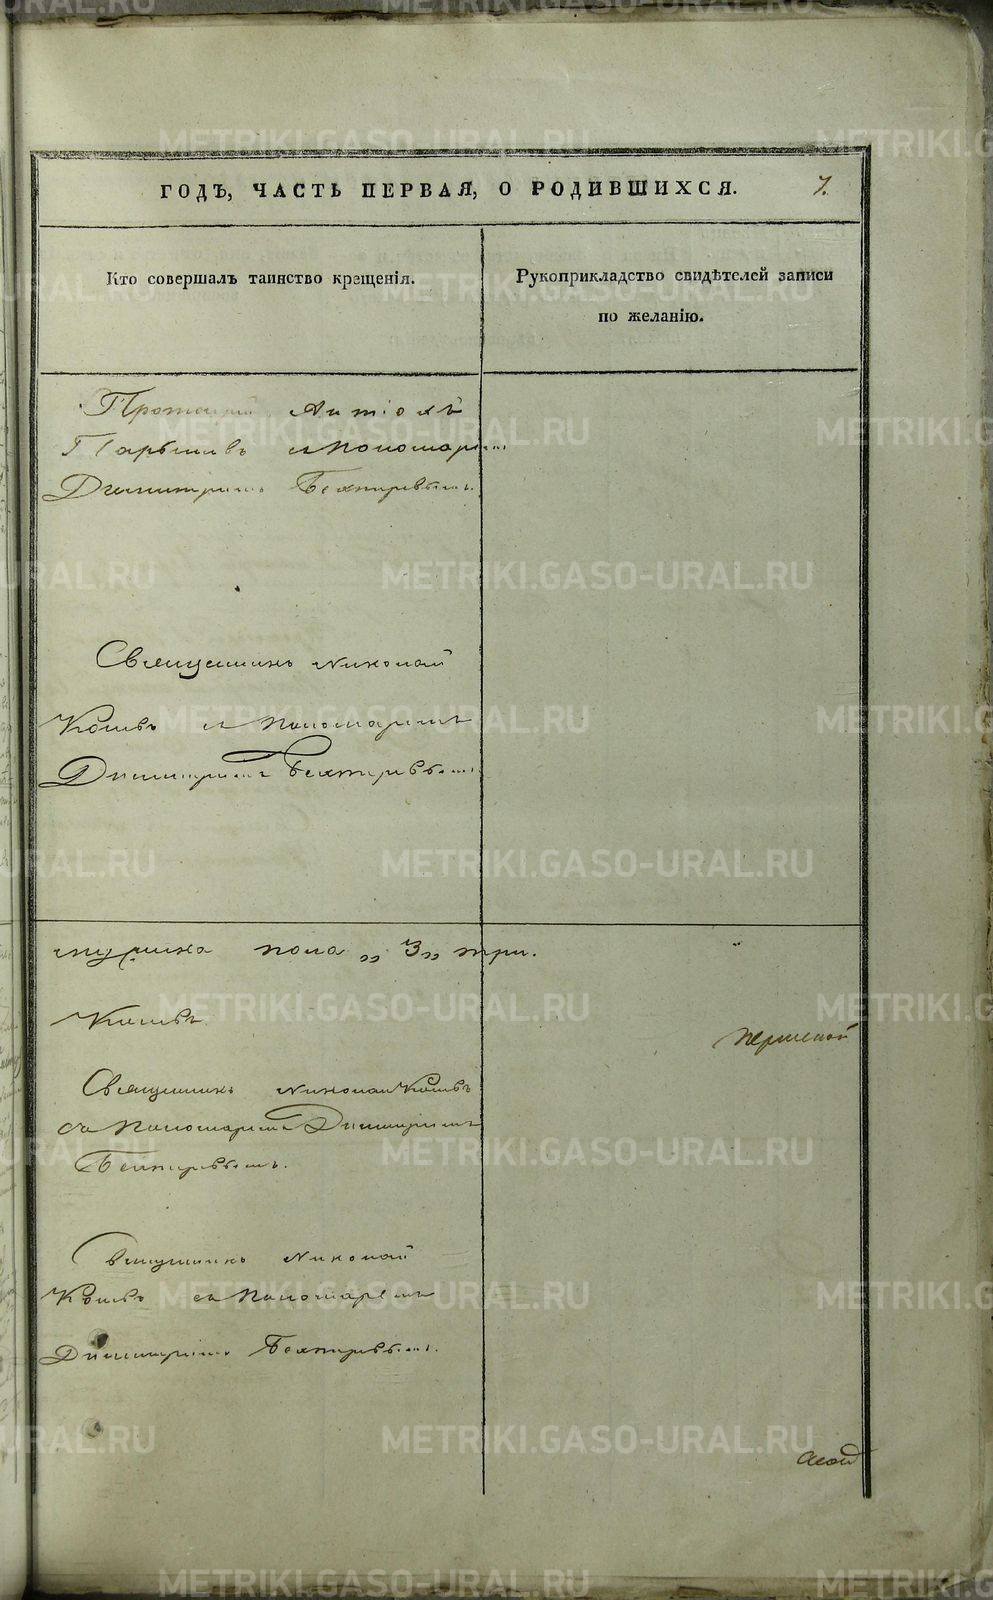 ГОДЪ, ЧАСТЬ ПЕРВАЯ, О РОДИВШИХСЯ. 7.
Кто совершалъ таинство крещенія.
Рукоприкладство свидѣтелей записи
по желанію.
Протоіерей
съ Пономаремъ
Димитріемъ Бехтиревымъ.
Священникъ Николай
съ Пономаремъ
Димитріемъ Бехтиревымъ.
мужеска пола „3„ три.
Священникъ Николай
съ Пономаремъ Димитріемъ
Бехтиревымъ.
Священникъ Николай
съ Пономаремъ
Димитріемъ Бехтиревымъ.
METRIKI.GASO-URAL.RU